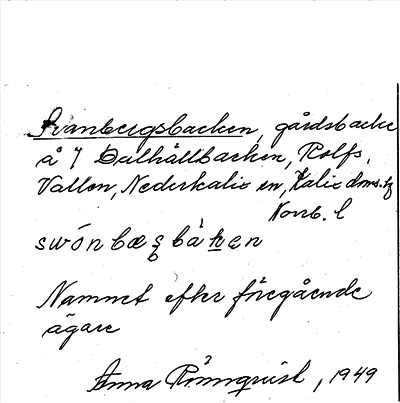 Svanbergsbacken, gårdsbacke
å 7 Dalhällbacken, Rolfs,
Vallen, Nederkalix sn, Kalix doms.
Norrb. l
Namnet efter föregående
ägare
Anna Rönnqvist, 1949